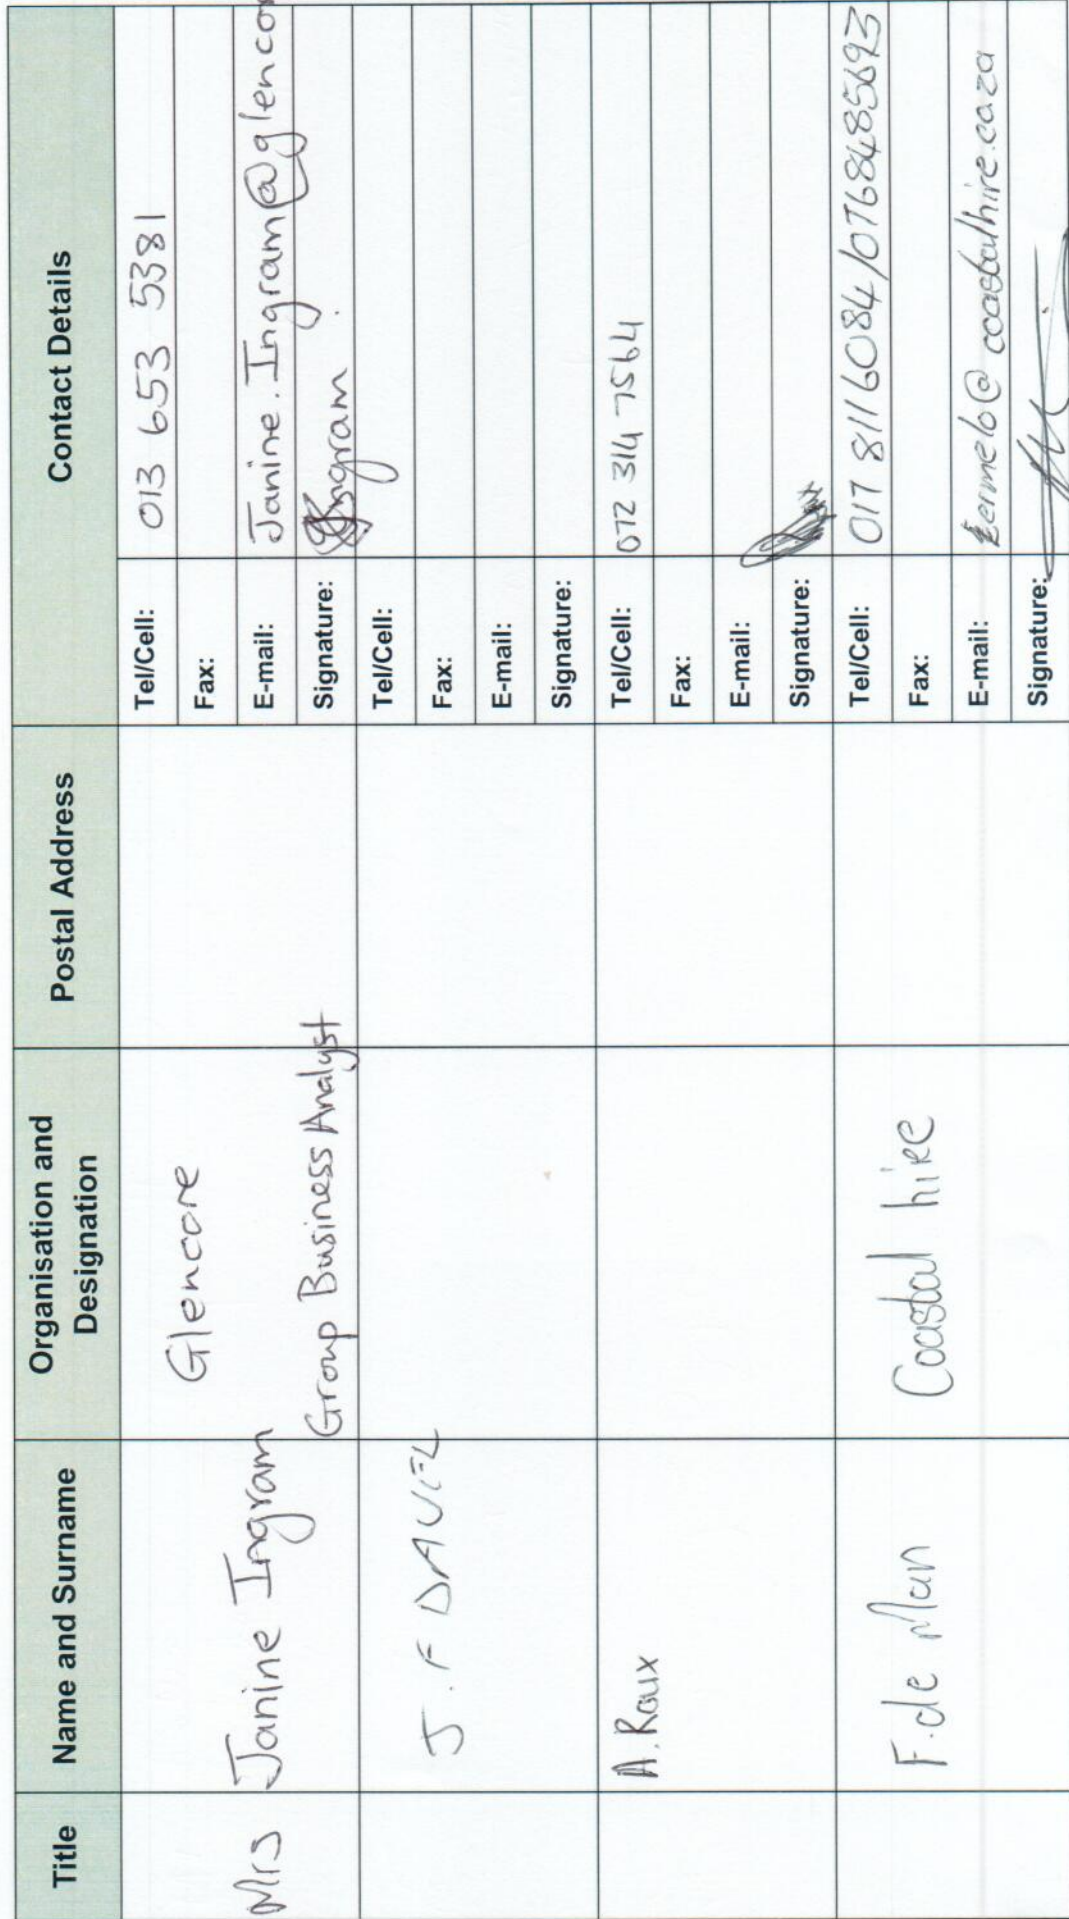 Title Name and Surname Organisation and Designation Postal Address Contact Details
Mrs Janine Ingram Glencore Group Business Analyst
Tel/Cell: 013 653 5381
Fax:
E-mail: Janine.Ingram@glenco
Signature: Ingram
J.F DAVEL
Tel/Cell:
Fax:
E-mail:
Signature:
A. Roux
Tel/Cell: 072 314 7564
Fax:
E-mail:
Signature:
F. de Man Coastal hire
Tel/Cell: 017 8116084/0768485693
Fax:
E-mail: ermelo@coastalhire.co.za
Signature: